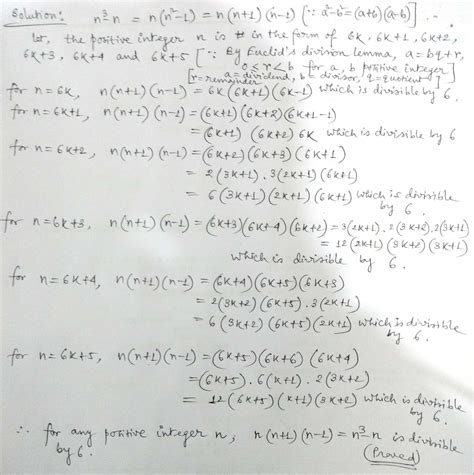 Solution: n³-n = n(n²-1) = n(n+1)(n-1) [∵ a²-b²=(a+b)(a-b)]
Let, the positive integer n is in the form of 6k, 6k+1, 6k+2,
6k+3, 6k+4 and 6k+5 [∵ By Euclid's division lemma, a=bq+r,
0≤r<b for a, b positive integer]
[r=remainder, a=dividend, b=divisor, q=quotient]
for n=6k, n(n+1)(n-1) = 6k(6k+1)(6k-1) which is divisible by 6.
for n=6k+1, n(n+1)(n-1) = (6k+1)(6k+2)(6k+1-1)
= (6k+1)(6k+2)6k which is divisible by 6
for n=6k+2, n(n+1)(n-1) = (6k+2)(6k+3)(6k+1)
= 2(3k+1).3(2k+1)(6k+1)
= 6(3k+1)(2k+1)(6k+1) which is divisible
by 6.
for n=6k+3, n(n+1)(n-1) = (6k+3)(6k+4)(6k+2) = 3(2k+1).2(3k+2).2(3k+1)
= 12(2k+1)(3k+2)(3k+1)
which is divisible by 6.
for n=6k+4, n(n+1)(n-1) = (6k+4)(6k+5)(6k+3)
= 2(3k+2)(6k+5).3(2k+1)
= 6(3k+2)(6k+5)(2k+1) which is divisible
by 6.
for n=6k+5, n(n+1)(n-1) = (6k+5)(6k+6)(6k+4)
= (6k+5).6(k+1).2(3k+2)
= 12(6k+5)(k+1)(3k+2) which is divisible
by 6.
∴ for any positive integer n, n(n+1)(n-1) = n³-n is divisible
by 6. (Proved)